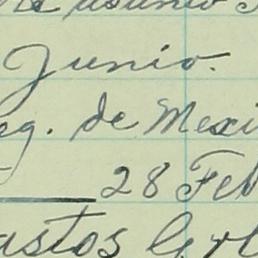 asunto
Junio.
eg. de Mexi
28 Feb
astos Grl